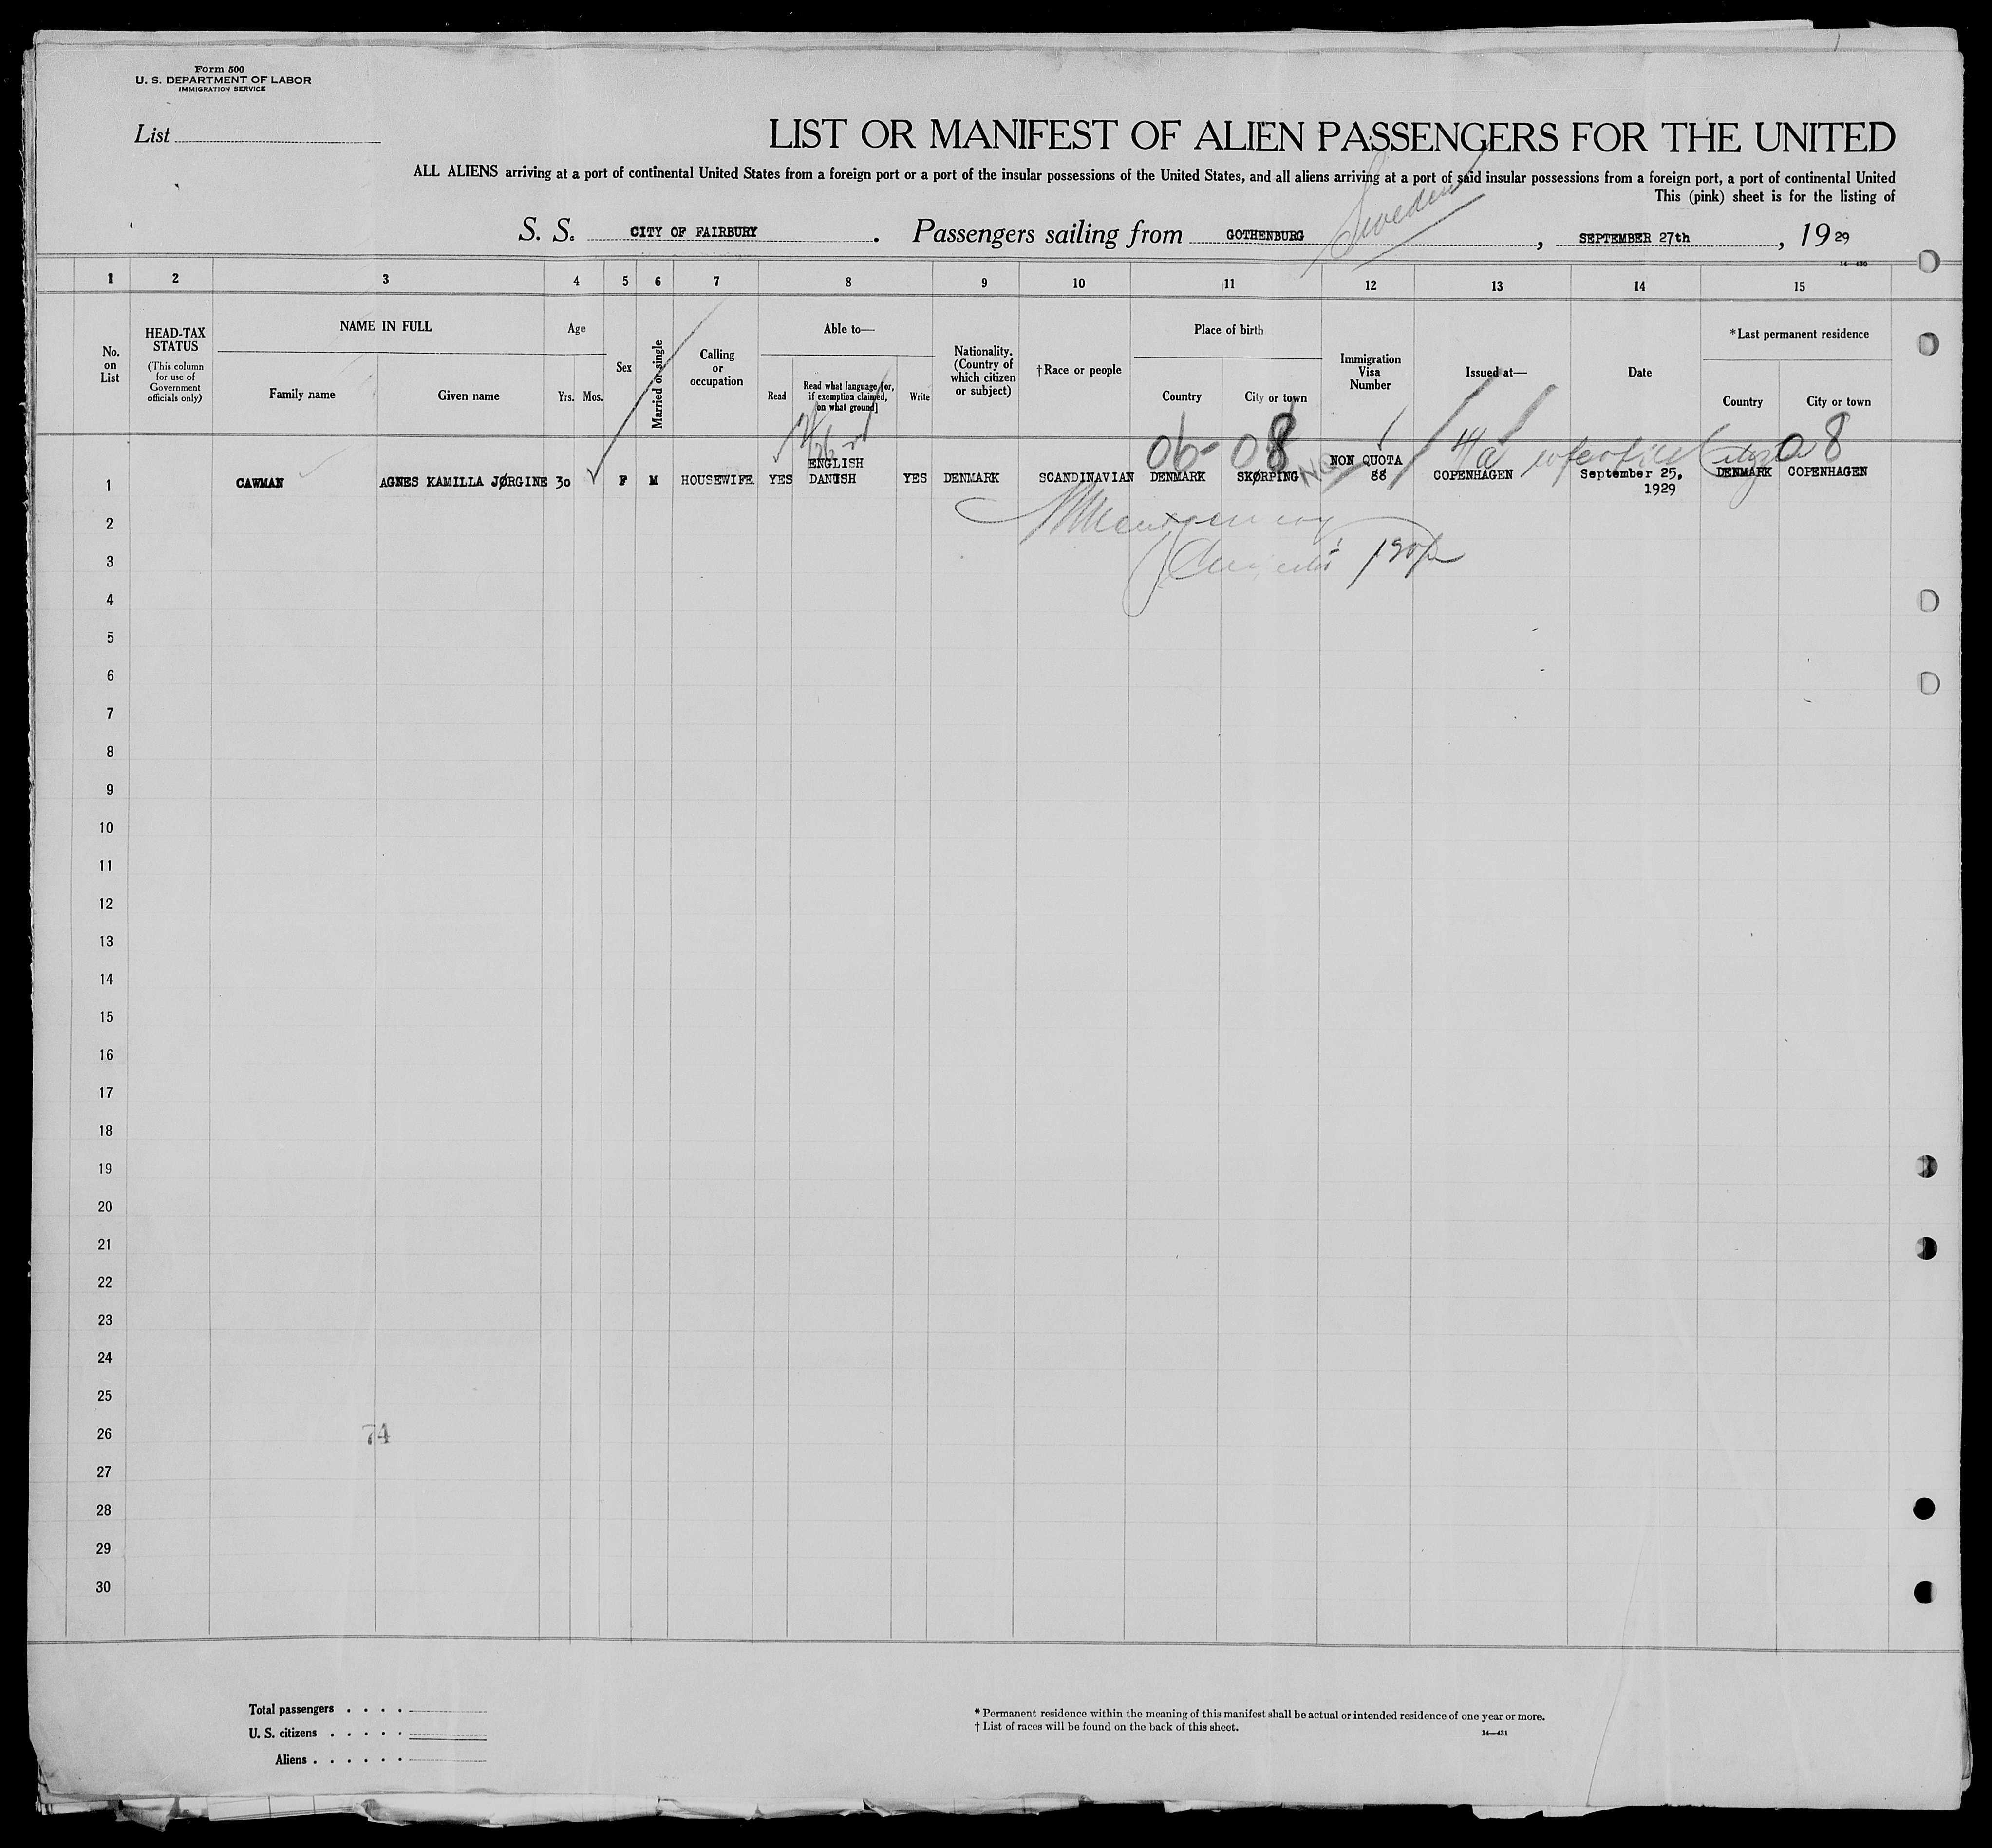 Form 500
U. S. DEPARTMENT OF LABOR
IMMIGRATION SERVICE
List
LIST OR MANIFEST OF ALIEN PASSENGERS FOR THE UNITED
ALL ALIENS arriving at a port of continental United States from a foreign port or a port of the insular possessions of the United States, and all aliens arriving at a port of said insular possessions from a foreign port, a port of continental United
This (pink) sheet is for the listing of
Sweden
S. S. CITY OF FAIRBURY . Passengers sailing from GOTHENBURG , SEPTEMBER 27th , 19 29
14—430
1 2 3 4 5 6 7 8 9 10 11 12 13 14 15
No. on List
HEAD-TAX STATUS
(This column for use of Government officials only)
NAME IN FULL
Family name Given name
Age
Yrs. Mos.
Sex
Married or single
Calling or occupation
Able to—
Read
Read what language [or, if exemption claimed, on what ground]
Write
Nationality. (Country of which citizen or subject)
†Race or people
Place of birth
Country City or town
Immigration Visa Number
Issued at—
Date
*Last permanent residence
Country City or town
06- 08 4/a 08
1 CAWMAN AGNES KAMILLA JØRGINE 30 F M HOUSEWIFE YES ENGLISH DANISH YES DENMARK SCANDINAVIAN DENMARK SKØRPING NQ NON QUOTA 88 COPENHAGEN September 25, 1929 DENMARK COPENHAGEN
2
3
4
5
6
7
8
9
10
11
12
13
14
15
16
17
18
19
20
21
22
23
24
25
26 74
27
28
29
30
Total passengers . . . .
U. S. citizens . . . . .
Aliens . . . . . .
* Permanent residence within the meaning of this manifest shall be actual or intended residence of one year or more.
† List of races will be found on the back of this sheet.
14—431